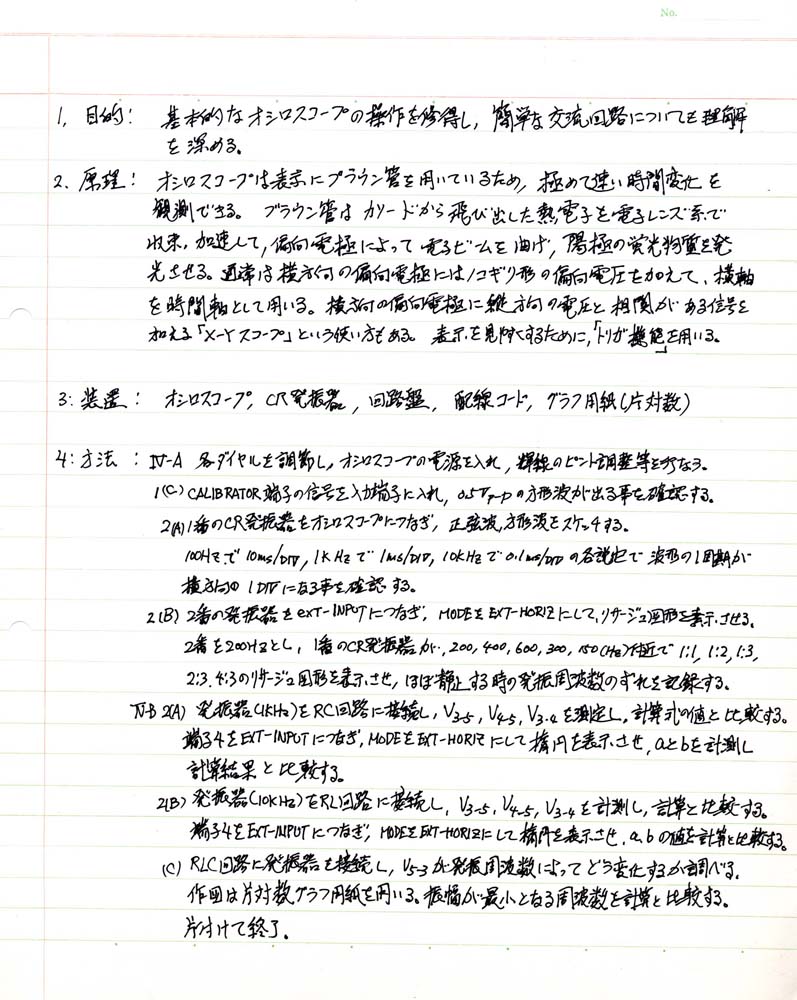 No.
1, 目的: 基本的なオシロスコープの操作を修得し, 簡単な交流回路についても理解
を深める。
2、原理: オシロスコープは表示にブラウン管を用いているため, 極めて速い時間変化を
観測できる。 ブラウン管はカソードから飛び出した熱電子を電子レンズ系で
収束, 加速して, 偏向電極によって電子ビームを曲げ, 陽極の蛍光物質を発
光させる。通常は横方向の偏向電極にはノコギリ形の偏向電圧を加えて、横軸
を時間軸として用いる。横方向の偏向電極に縦方向の電圧と相関がある信号を
加える「X-Yスコープ」という使い方もある。 表示を見やすくするために,「トリガ機能」を用いる。
3: 装置: オシロスコープ, CR発振器, 回路盤, 配線コード, グラフ用紙(片対数)
4: 方法: IV-A 各ダイヤルを調節し, オシロスコープの電源を入れ, 輝線のピント調整等を行なう。
1(C) CALIBRATOR端子の信号を入力端子に入れ, 0.5Vp-pの方形波が出る事を確認する。
2(A) 1番のCR発振器をオシロスコープにつなぎ, 正弦波, 方形波をスケッチする。
100Hzで10ms/DIV, 1KHzで1ms/DIV, 10KHzで0.1ms/DIVの各設定で波形の1周期が
横方向の1DIVになる事を確認する。
2(B) 2番の発振器をEXT-INPUTにつなぎ, MODEをEXT-HORIZにして, リサージュ図形を表示させる。
2番を200Hzとし, 1番のCR発振器が, 200, 400, 600, 300, 150(Hz)付近で1:1, 1:2, 1:3,
2:3, 4:3のリサージュ図形を表示させ, ほぼ静止する時の発振周波数のずれを記録する。
IV-B 2(A) 発振器(1KHz)をRC回路に接続し, V3-5, V4-5, V3-4を測定し, 計算式の値と比較する。
端子4をEXT-INPUTにつなぎ, MODEをEXT-HORIZにして楕円を表示させ, aとbを計測し
計算結果と比較する。
2(B) 発振器(10KHz)をRL回路に接続し, V3-5, V4-5, V3-4を計測し, 計算と比較する。
端子4をEXT-INPUTにつなぎ, MODEをEXT-HORIZにして楕円を表示させ, a, bの値を計算と比較する。
(C) RLC回路に発振器を接続し, V5-3が発振周波数によってどう変化するか調べる。
作図は片対数グラフ用紙を用いる。振幅が最小となる周波数を計算と比較する。
片付けて終了.